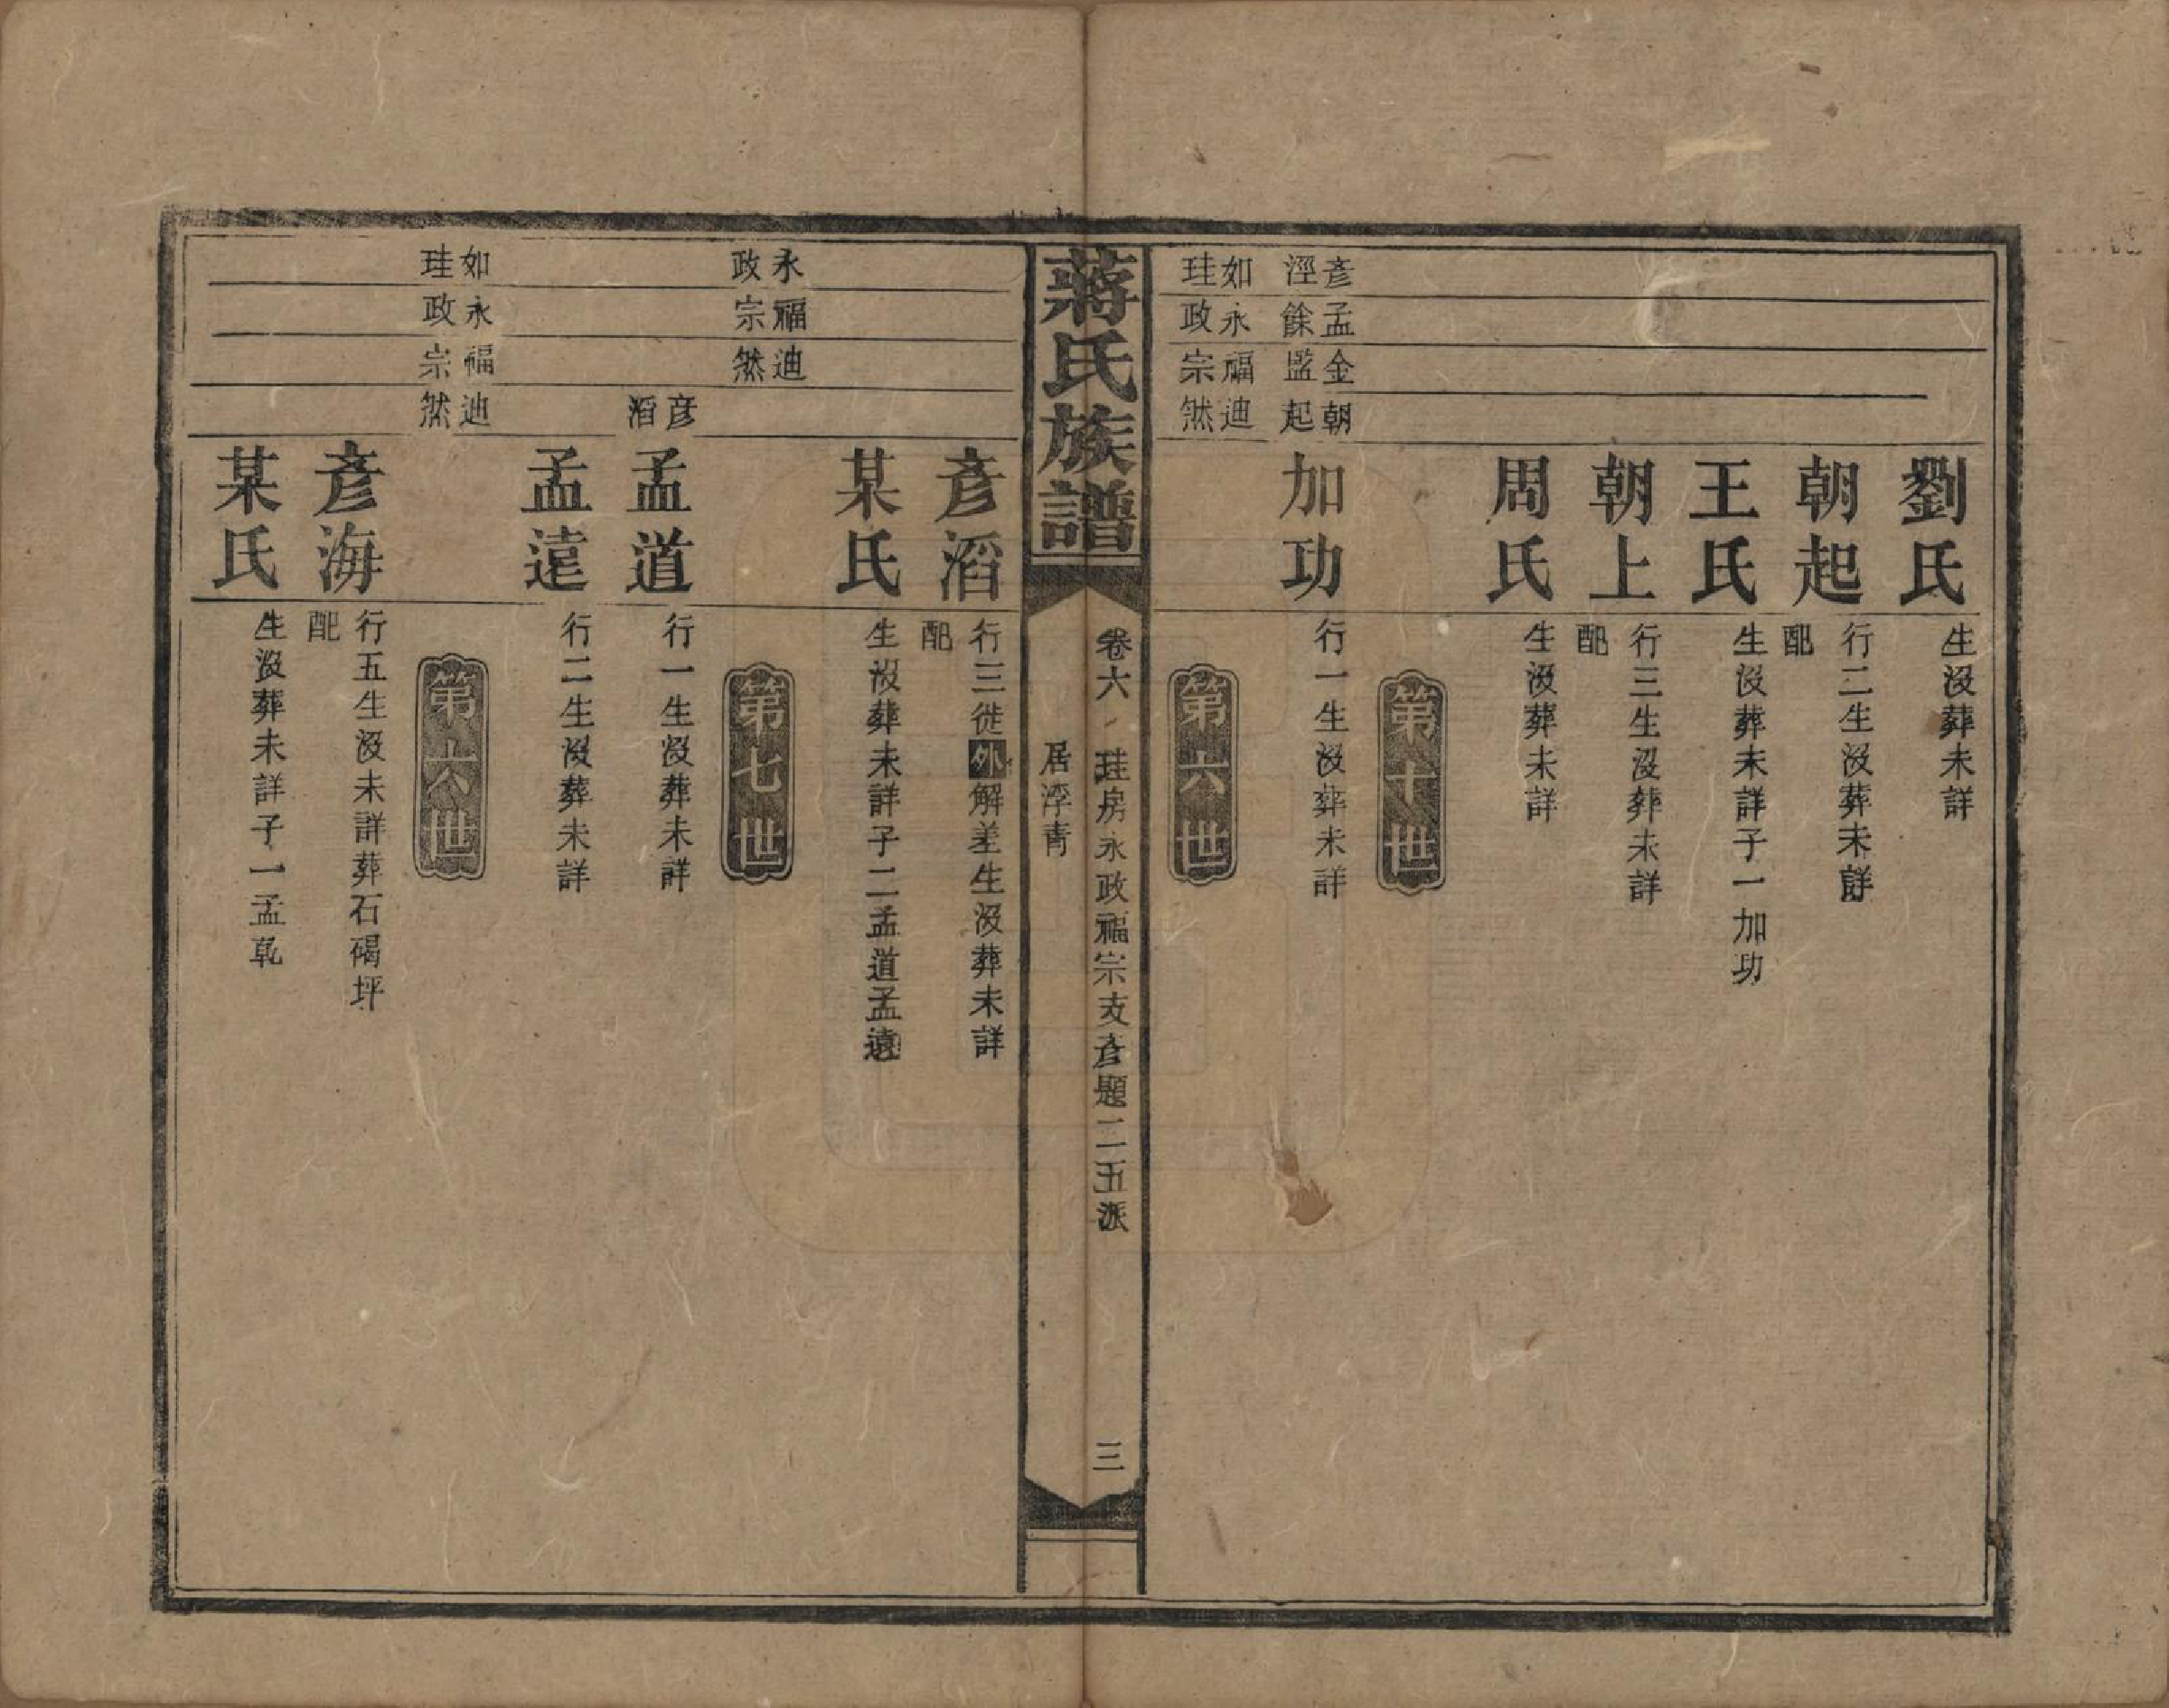 劉氏
生沒葬未詳
朝起
行二生沒葬未詳
配
王氏
生沒葬未詳子一加功
朝上
行三生沒葬未詳
配
周氏
生沒葬未詳
第十世
彥孟金朝
涇餘監起
加功
行一生沒葬未詳
如永福迪
珪政宗然
第六世
蔣氏族譜
卷六
珪房永政福宗支彥題二五派
居浮青
三
彥滔
行三徙外解差生沒葬未詳
配
某氏
生沒葬未詳子二孟道孟遠
永福迪
政宗然
第七世
彥
滔
孟道
行一生沒葬未詳
孟遠
行二生沒葬未詳
如永福迪
珪政宗然
第六世
彥海
行五生沒未詳葬石碣坪
配
某氏
生沒葬未詳子一孟乾